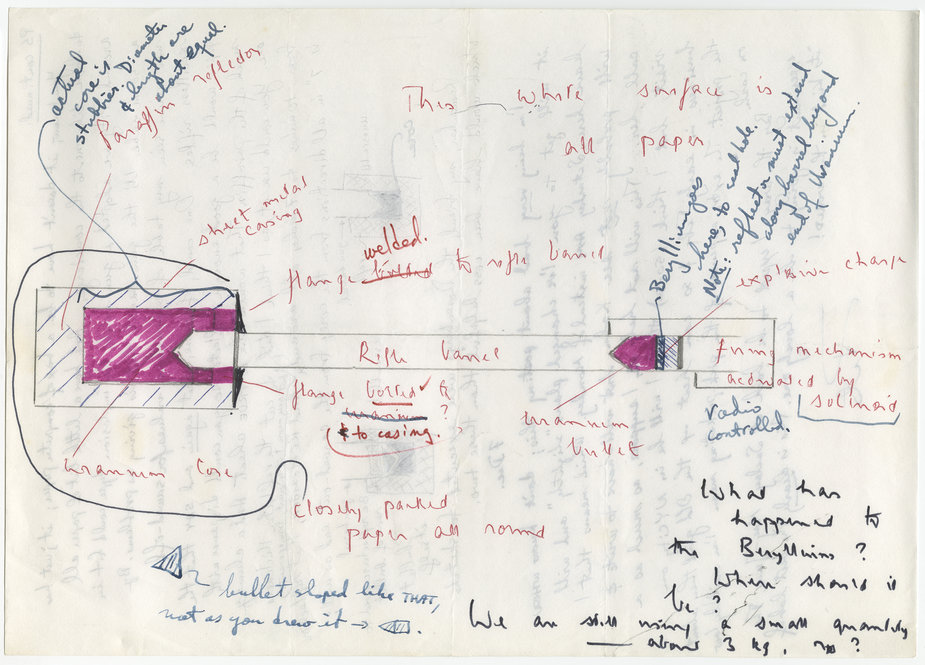 actual
core is
stubbier. Diameter
& length are
about equal.
Paraffin reflector
This white surface is
all paper
Beryllium goes
here, to seal hole.
Note: reflector must extend
along barrel beyond
end of Uranium.
sheet metal
casing
welded.
flange bolted to rifle barrel
explosive charge
Rifle barrel
firing mechanism
actuated by
solinoid
radio
controlled.
flange bolted ✓ to
uranium ?
& to casing.
uranium
bullet
uranium core
closely packed
paper all round
What has
happened to
the Beryllium ?
Where should it
be ?
We are still using a small quantity
— about 3 kg, no ?
bullet sloped like THAT,
not as you drew it →